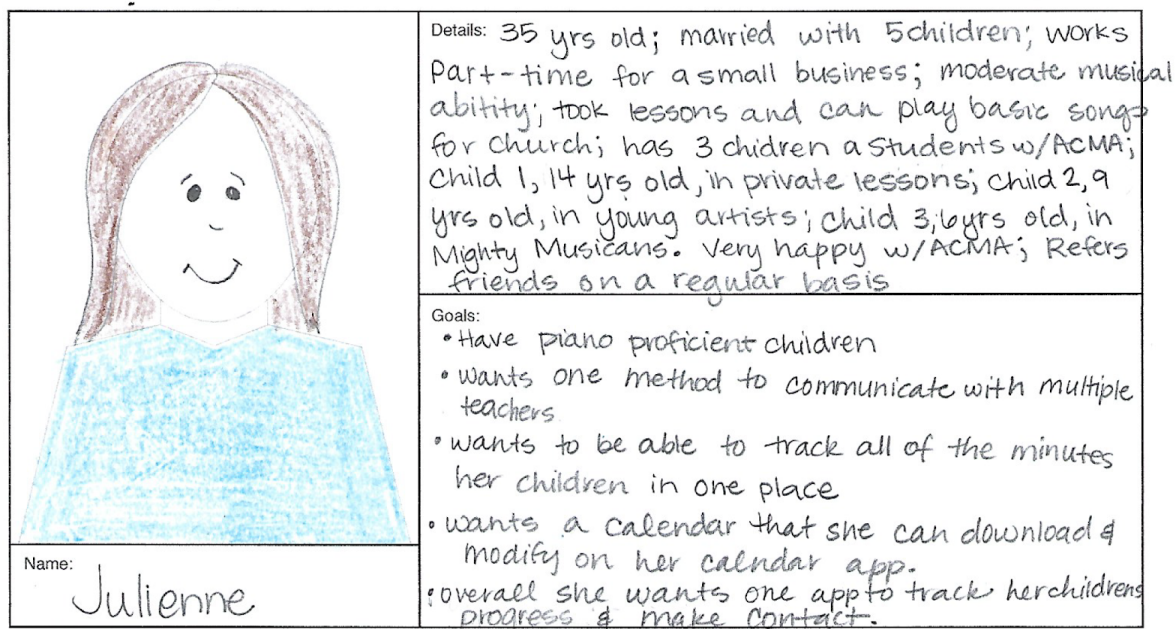 Details: 35 yrs old; married with 5children; works
Part-time for a small business; moderate musical
abitity; took lessons and can play basic songs
for church; has 3 chidren a Students w/ACMA;
Child 1, 14 yrs old, in private lessons; Child 2, 9
yrs old, in young artists; Child 3, 6yrs old, in
Mighty Musicans. Very happy w/ACMA; Refers
friends on a regular basis
Goals:
• Have piano proficient children
• wants one method to communicate with multiple
teachers
• wants to be able to track all of the minutes
her children in one place
• wants a calendar that she can download &
modify on her calndar app.
• overall she wants one app to track her childrens
progress & make contact.
Name:
Julienne